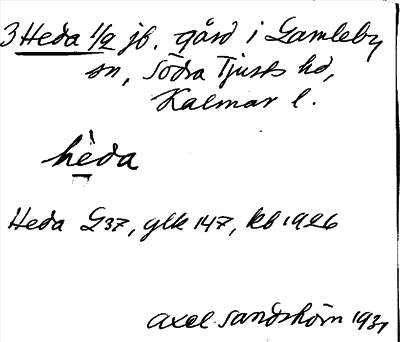 3 Heda 1/2 jb. gård i Gamleby
sn, Södra Tjusts hd,
Kalmar l.
hèda
Heda G37, glk 147, kb 1926
Axel Sandström 1931